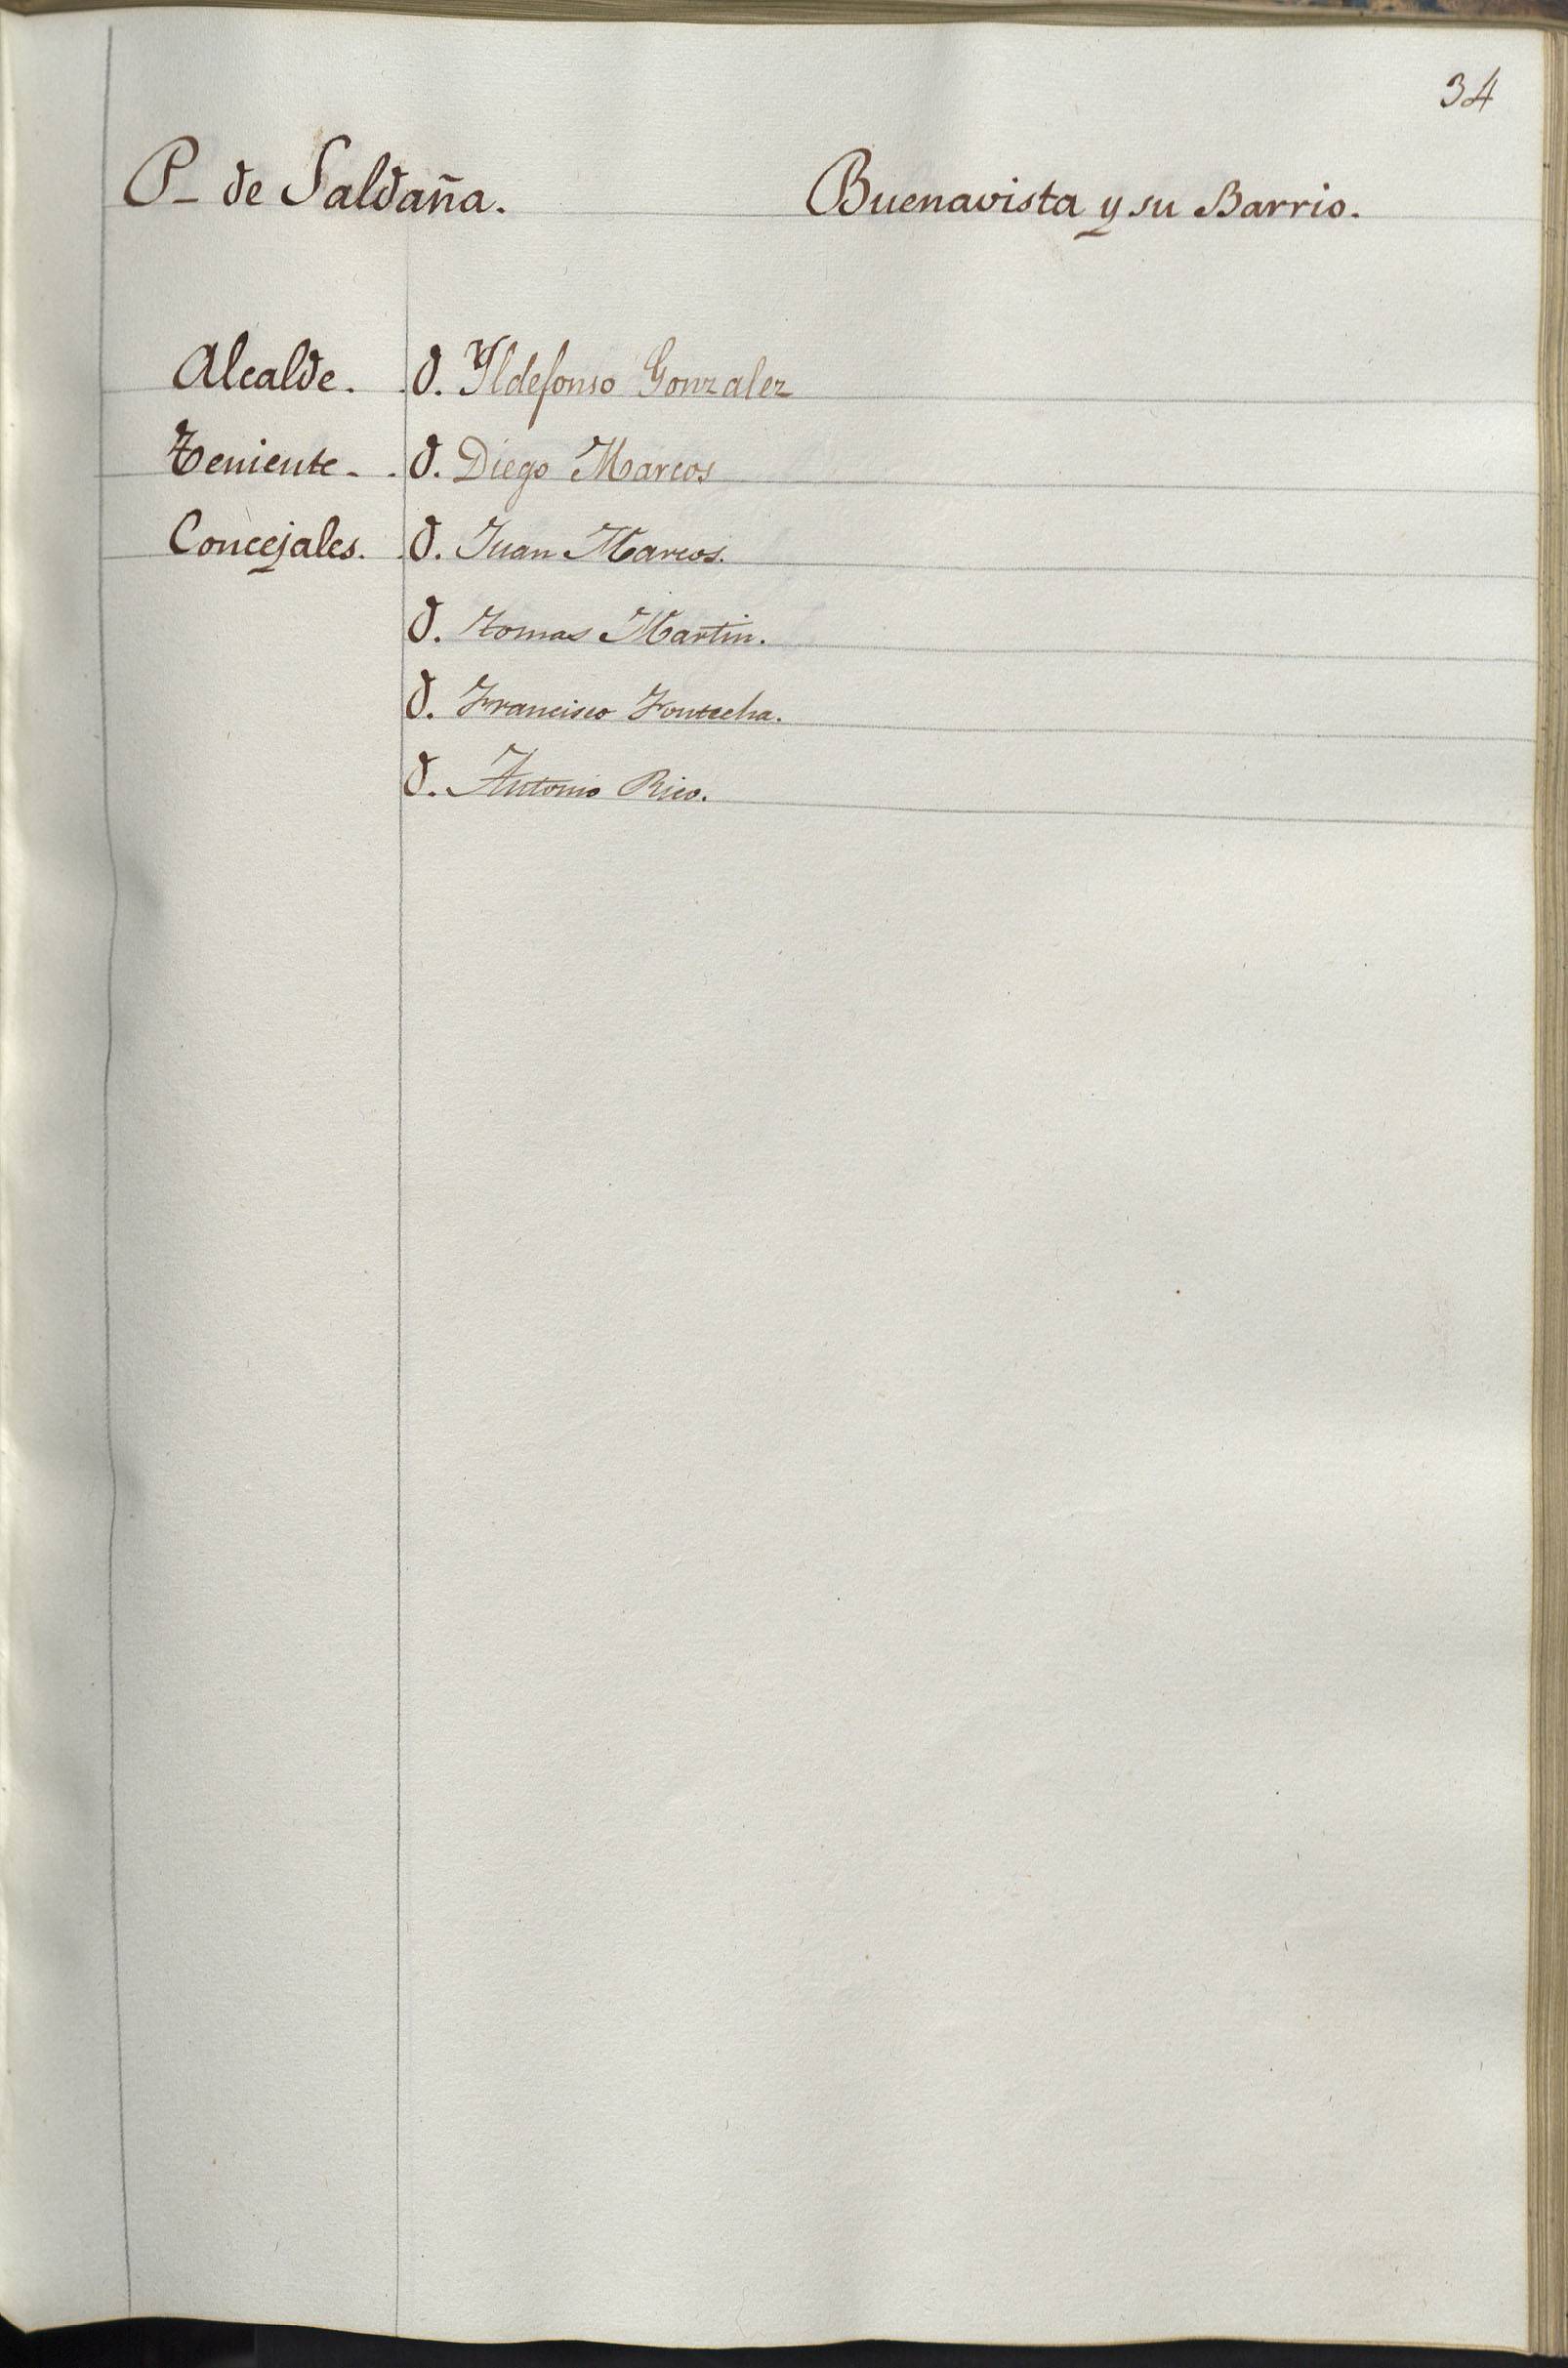 34
P- de Saldaña. Buenavista y su Barrio.
Alcalde. D. Yldefonso Gonzalez
Teniente. D. Diego Marcos
Concejales. D. Juan Marcos.
D. Tomas Martin.
D. Francisco Fontecha.
D. Antonio Rico.